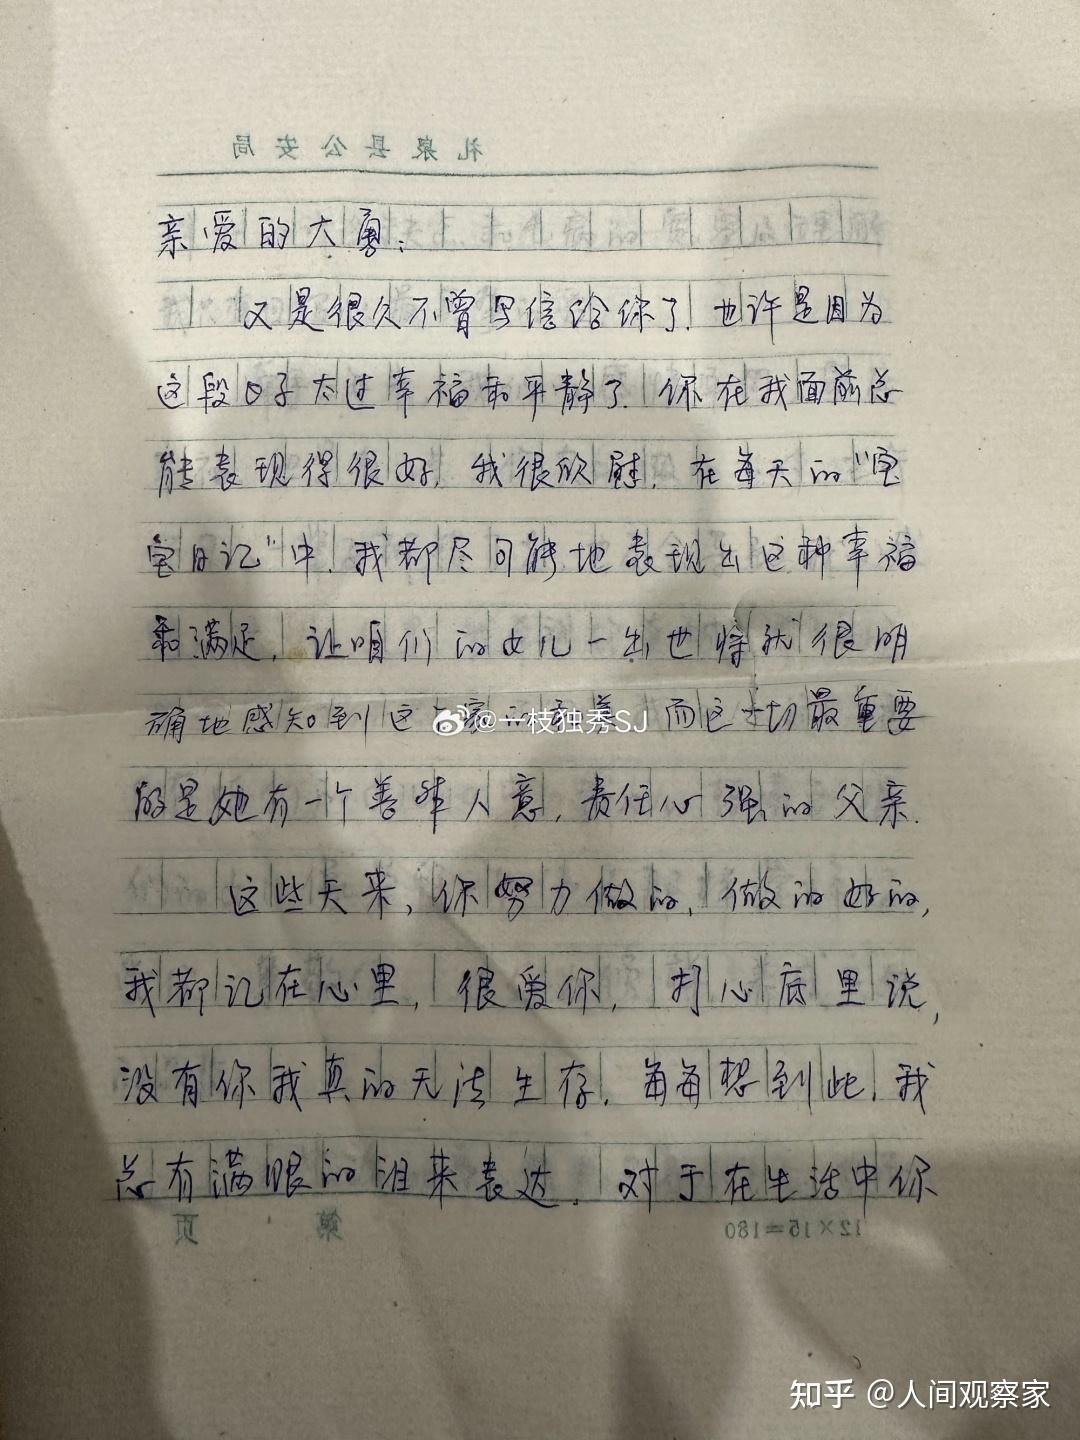 礼泉县公安局
亲爱的大勇：
又是很久不曾写信给你了，也许是因为
这段日子太过幸福和平静了。你在我面前总
能表现得很好，我很欣慰，在每天的“宝
宝日记”中，我都尽可能地表现出这种幸福
和满足，让咱们的女儿一出世将就很明
确地感知到这
@一枝独秀SJ
而这一切最重要
的是她有一个善解人意，责任心强的父亲。
这些天来，你努力做的，做的好的，
我都记在心里，很爱你，打心底里说，
没有你我真的无法生存，每每想到此，我
总有满眼的泪来表达。对于在生活中你
12×15=180 第 页
知乎 @人间观察家